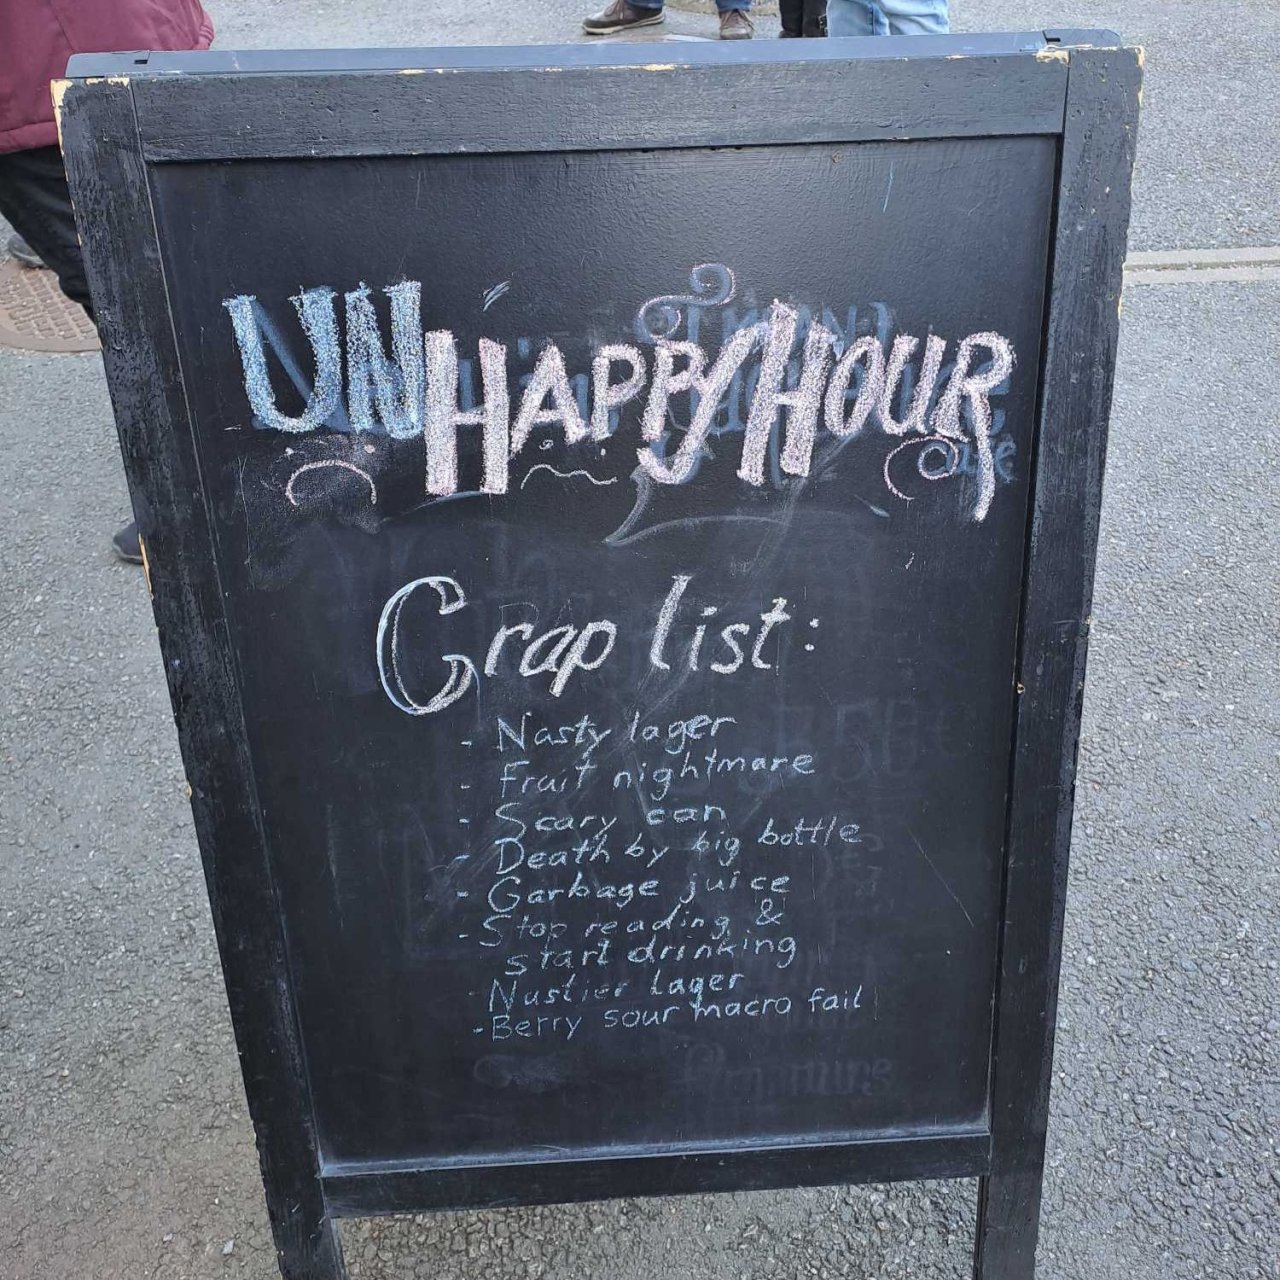 UNHAPPY HOUR
Crap list:
- Nasty lager
- Fruit nightmare
- Scary can
- Death by big bottle
- Garbage juice
- Stop reading &
start drinking
Nastier lager
- Berry sour macro fail